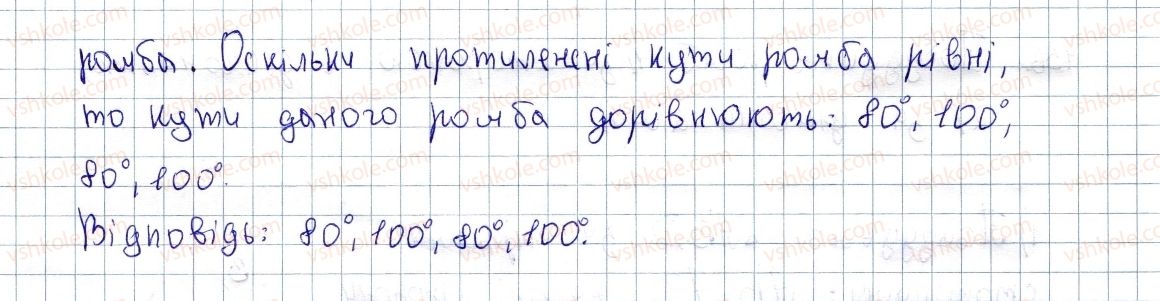 ромба. Оскільки протилежні кути ромба рівні,
то кути даного ромба дорівнюють: 80°, 100°,
80°, 100°.
Відповідь: 80°, 100°, 80°, 100°.